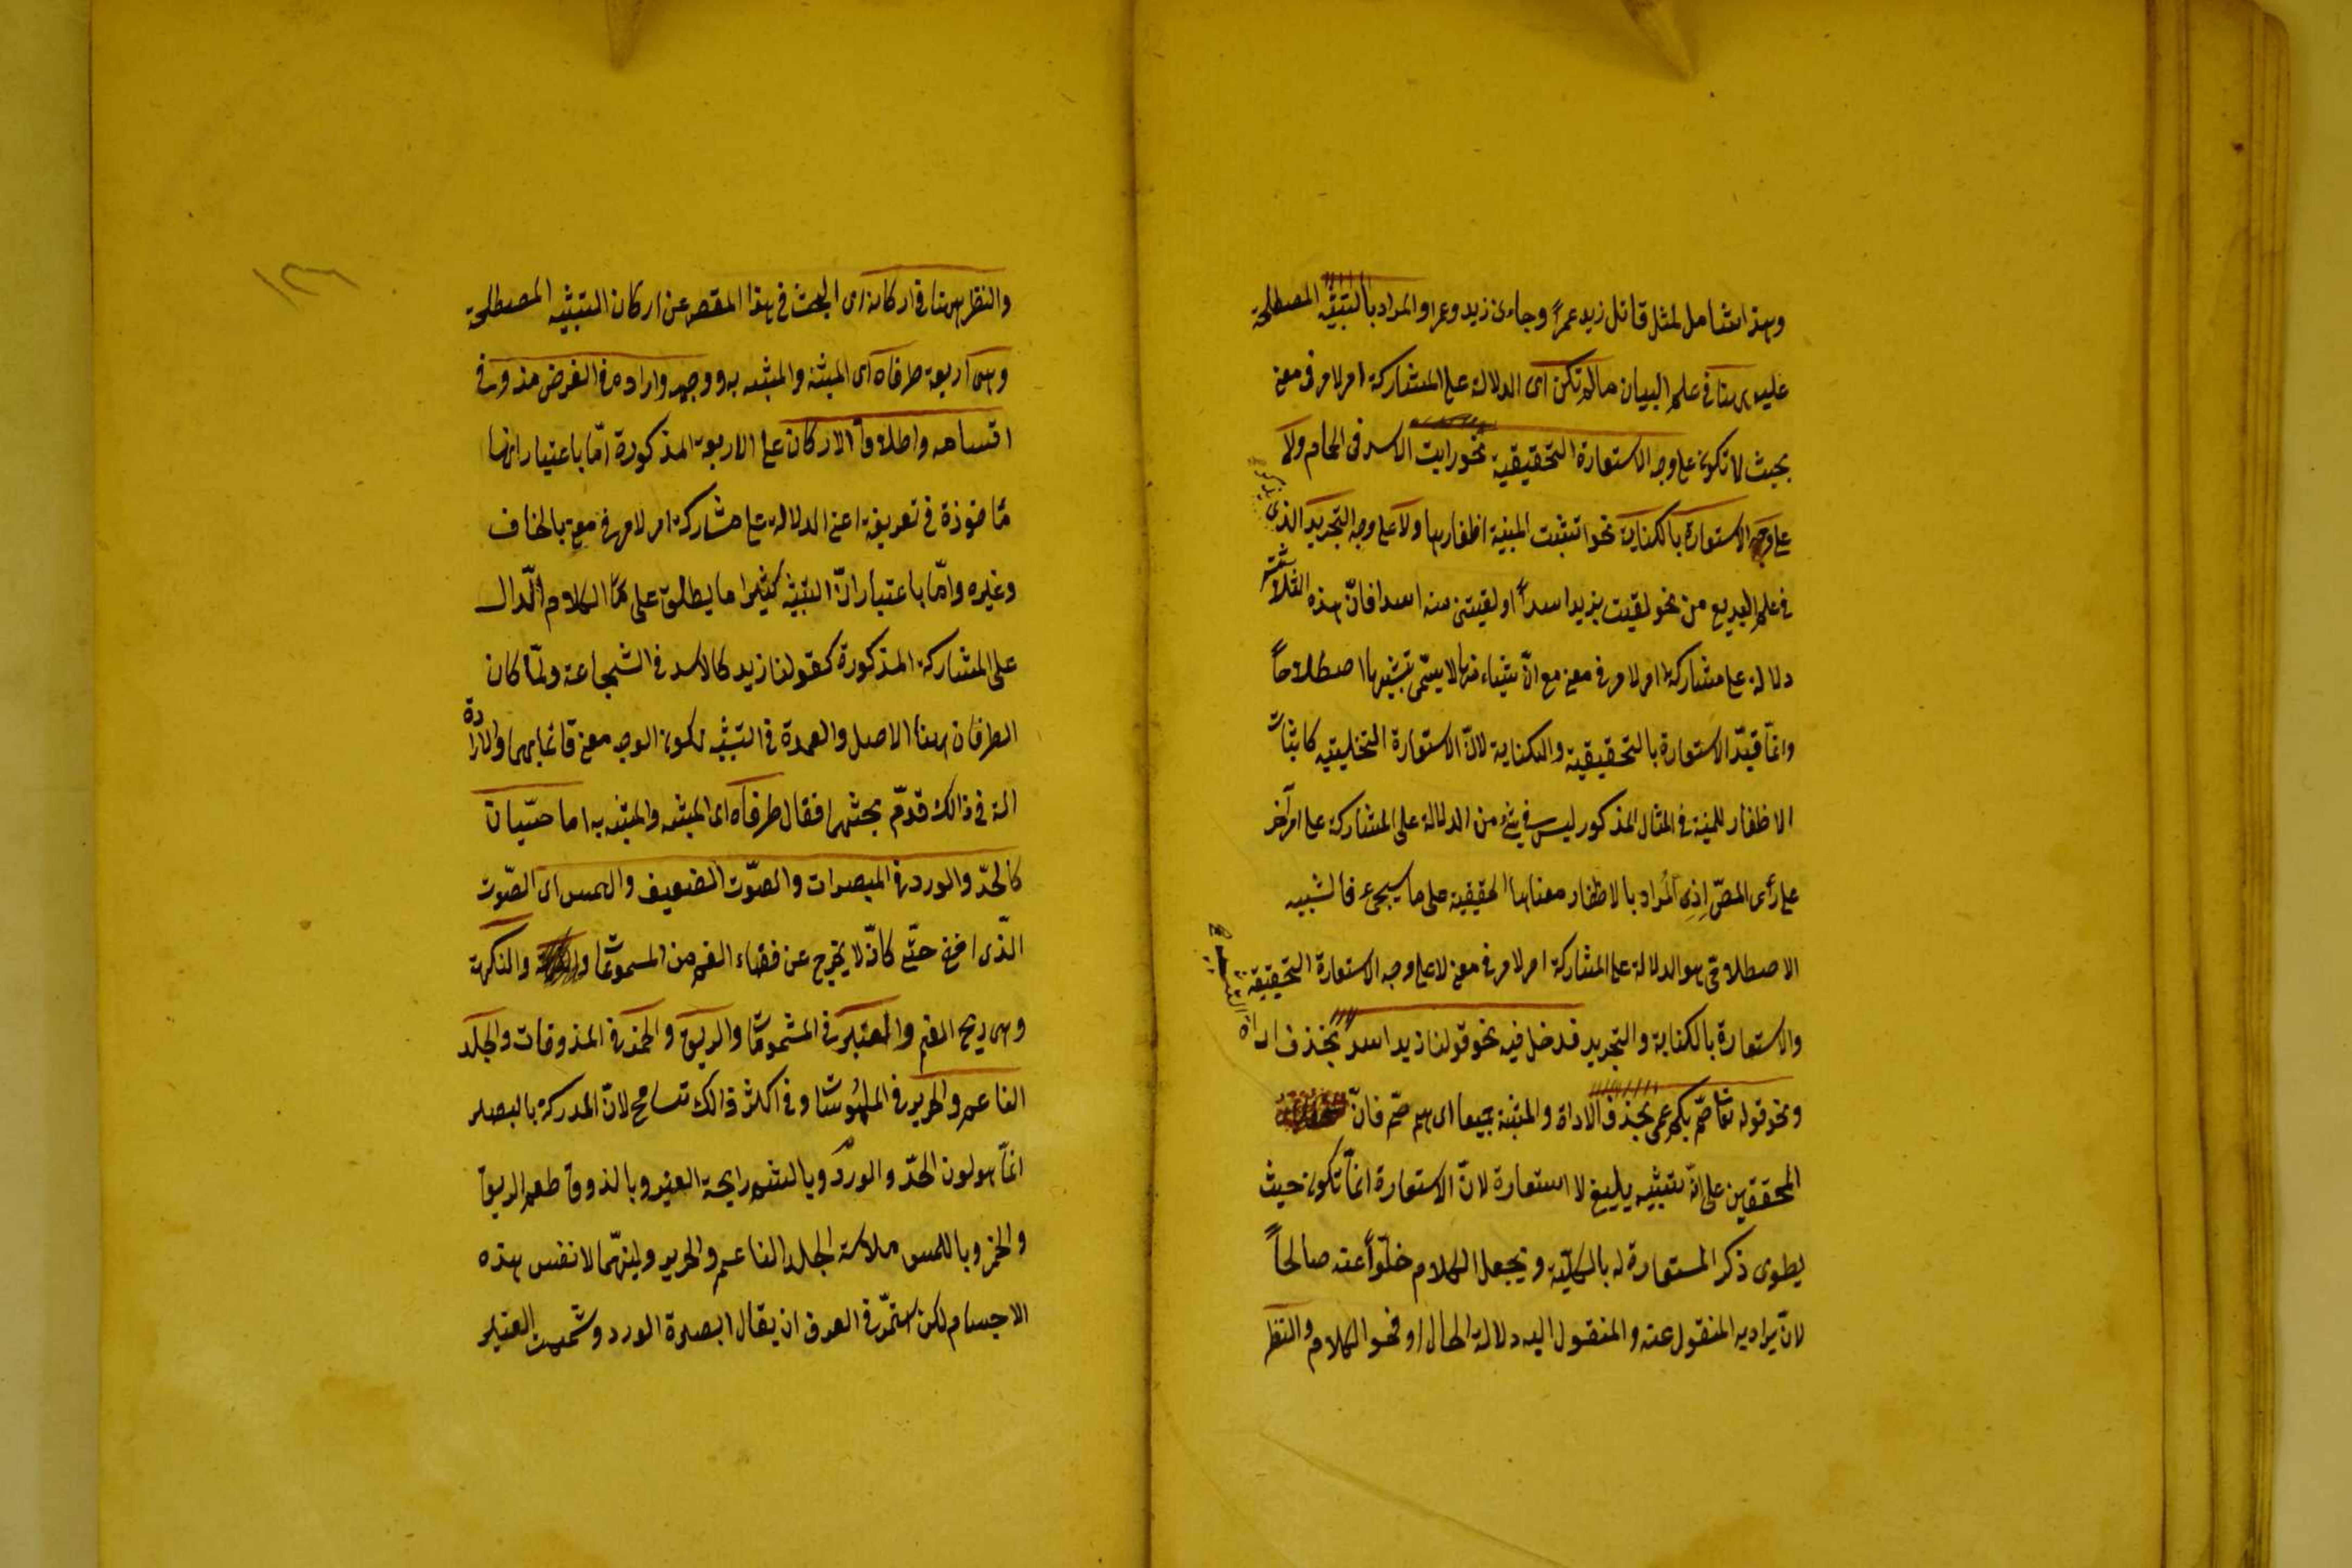 وهذا شامل لمثل قاتل زيد عمرًا وجاءنى زيد وعمرا والمراد بالتشبيه المصطلحة
عليه ههنا فى علم البيان مالم تكن اى الدلالة على المشاركة امر لامر فى معنى
بحيث لا تكون على وجه الاستعارة التحقيقية نحو رايت الاسد فى الحمام ولا
على وجه الاستعارة بالكناية نحو انشبت المنية اظفارها ولا على وجه التجريد الذى يذكر
فى علم البديع من نحو لقيت بزيد اسداً او لقيتنى منه اسدا فانّ هذه الثلاثة
دلالة على مشاركة امر لامر فى معنى مع انّ شيئاء منها لا يسمّى تشبيها اصطلاحاً
وانمّا قيّد الاستعارة بالتحقيقية والكناية لانّ الاستعارة التخليية كاثبات
الاظفار للمنية فى المثال المذكور ليس فى شئ من الدلالة على المشاركة على امر آخر
على رأى المصّ اِذِ اَلمُراد بالاظفار معناها الحقيقية على ما سيجئ فالتشبيه
الاصطلاحى هو الدلالة على المشاركة امر لامر فى معنى لا على وجه الاستعارة التحقيقية
والاستعارة بالكناية والتجريد فدخل فيه نحو قولنا زيد اسدٌ بحذف اداة التشبيه
ونحو قوله تعا صمّ بكم عمى بحذف الاداة والمشبه جميعا اى هم صمّ فانّ
المحققين على انّه تشبيه بليغ لا استعارة لانّ الاستعارة انمّا تكون حيث
يطوى ذكر المستعارة له بالكلّية ويجعل الكلام خلّواً عنه صالحاً
لانّ يراد به المنقول عنه والمنقول اليه دلالة الحال او فحو الكلام والنظر
١٢٦
والنظر ههنا فى اركانه اى البحث فى هذا المقصد عن اركان التشبيه المصطلحة
وهى اربعة طرفاه اى المشبه والمشبه به ووجهه واداته وفى الغرض منه وفى
اقسامه واطلاق الاركان على الاربعة المذكورة امّا باعتبار انها
مأخوذة فى تعريفه اعنى الدلالة على مشاركة امر لامر فى معنى بالكاف
وغيره وامّا باعتبار انّ التشبيه كثيرا ما يطلق على الكلام الدّال
على المشاركة المذكورة كقولنا زيد كالاسد فى الشجاعة ولمّا كان
الطرفان هنا الاصل والعمدة فى التشبيه لكون الوجه معنى قائما بهما والاداة
الة فى ذالك قدّم بحثهما فقال طرفاه اى المشبه والمشبه به اما حسّيان
كالخدّ والورد فى المبصرات والصّوت الضعيف والهمس اى الصّوت
الذّى اخفى حتّى كانّه لا يخرج عن فضاء الفم من المسموعات والنكهة
وهى ريح الفم والعنبر فى المشمومات والريق والخمر فى المذوقات والجلد
الناعم والحرير فى الملموسات وفى اكثر ذالك تسامح لانّ المدركة بالبصر
انمّا هو لون الخدّ والورد وبالشم رايحة العنبر وبالذوق طعم الريق
والخمر وباللمس ملاسة الجلد الناعم والحرير ولينهما لا نفس هذه
الاجسام لكن استمرّ فى العرف ان يقال ابصرة الورد وشممت العنبر